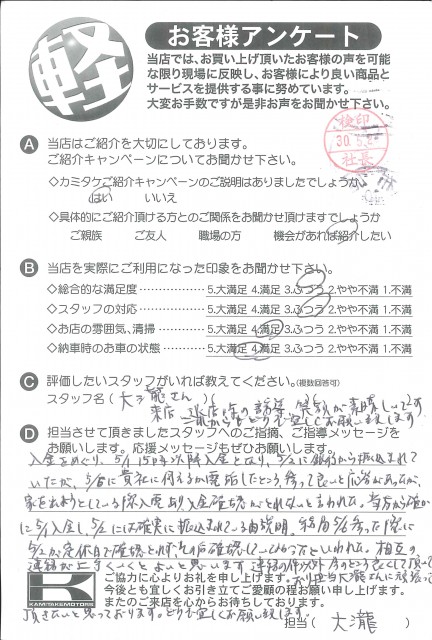 軽
お客様アンケート
当店では、お買い上げ頂いたお客様の声を可能
な限り現場に反映し、お客様により良い商品と
サービスを提供する事に努めています。
大変お手数ですが是非お声をお聞かせ下さい。
検印
30.5.
社長
A 当店はご紹介を大切にしております。
ご紹介キャンペーンについてお聞かせ下さい。
◇カミタケご紹介キャンペーンのご説明はありましたでしょうか
はい いいえ
◇具体的にご紹介頂ける方とのご関係をお聞かせ頂けますでしょうか
ご親族 ご友人 職場の方 機会があれば紹介したい
B 当店を実際にご利用になった印象をお聞かせ下さい。
◇総合的な満足度 5.大満足 4.満足 3.ふつう 2.やや不満 1.不満
◇スタッフの対応 5.大満足 4.満足 3.ふつう 2.やや不満 1.不満
◇お店の雰囲気、清掃 5.大満足 4.満足 3.ふつう 2.やや不満 1.不満
◇納車時のお車の状態 5.大満足 4.満足 3.ふつう 2.やや不満 1.不満
C 評価したいスタッフがいれば教えてください。(複数回答可)
スタッフ名(大瀧さん)(
来店 誘導 笑顔が素晴しいです
これからもどうぞ宜しくお願い致します
D 担当させて頂きましたスタッフへのご指摘、ご指導メッセージを
お願いします。応援メッセージもぜひお願いします。
入金をめぐり、5/1 15時以降入金となり、5/2に銀行から振込まれて
いたが、5/6に貴社に伺えるか電話したところ、待って良いと応答があったが、
家を出ようとしている際入電あり入金確認がとれないと言われた。当方から確か
に5/1入金し、5/2には確実に振込まれている由説明。
5/2が定休日で確認とれずその後確認していなかったといわれた。相互の
連絡が上手くいくとよいと思います
ご協力に心よりお礼を申し上げます。
今後とも宜しくお引き立てご愛顧の程お願い申し上げます。
またのご来店を心からお待ちしております。
KAMITAKE MOTORS
頂きたいと思っております。どうぞ宜しくお願い致します。
担当(大瀧)